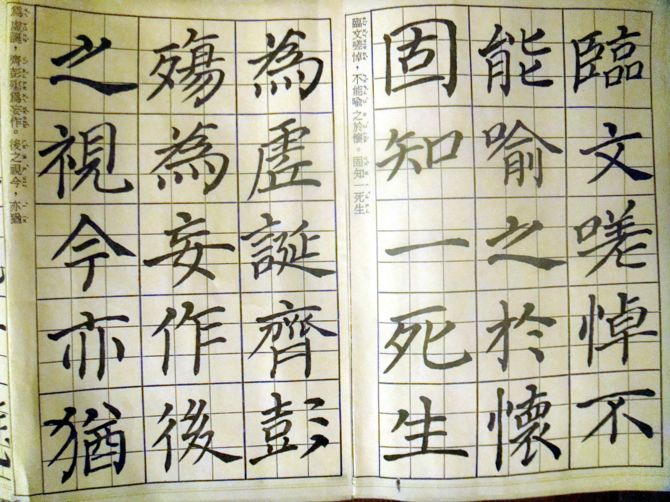 臨文嗟悼不
能喻之於懷
固知一死生
臨文嗟悼，不能喻之於懷。固知一死生
為虛誕齊彭
殤為妄作後
之視今亦猶
為虛誕，齊彭殤為妄作。後之視今，亦猶